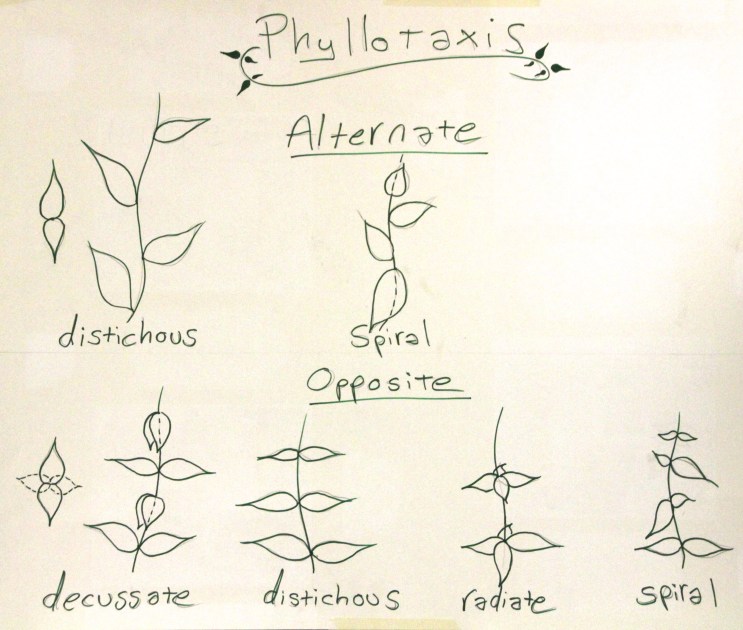 Phyllotaxis
Alternate
distichous
Spiral
Opposite
decussate
distichous
radiate
spiral